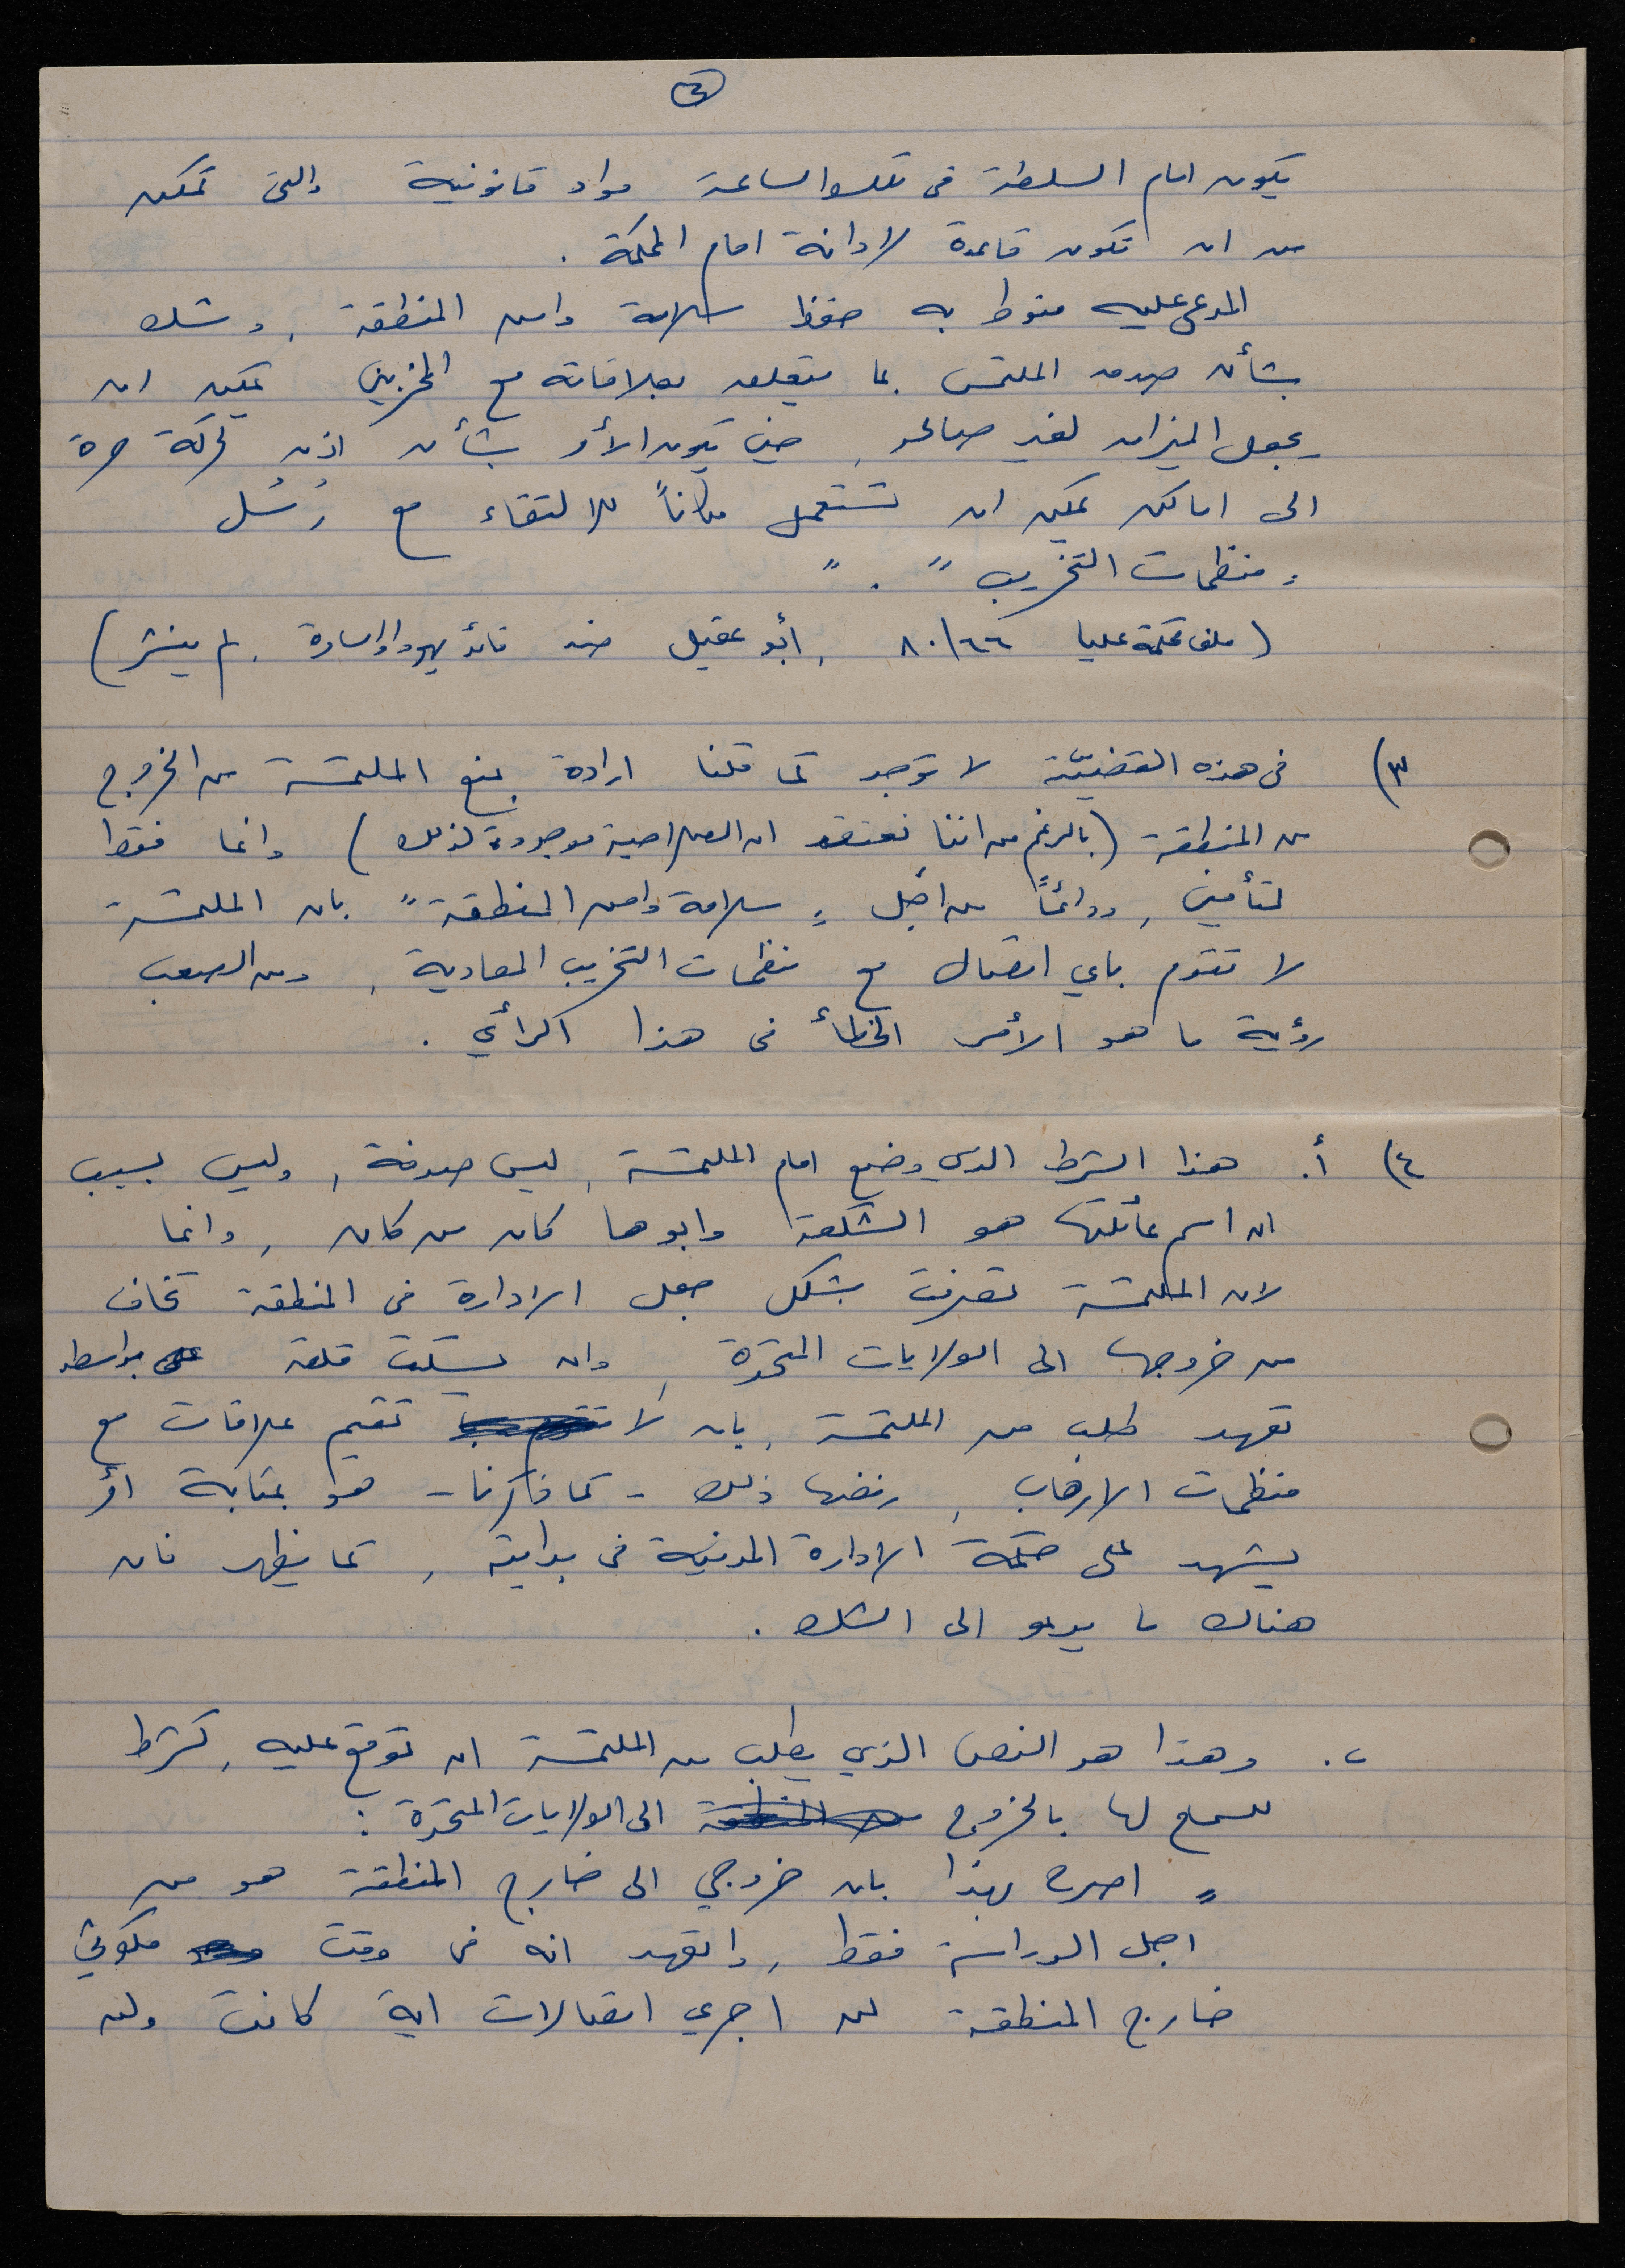 ٣
يكون امام السلطة في تلك الساعة مواد قانونية والتي تمكن
من ان تكون قاعدة لادانة امام المحكمة .
المدعى عليه منوط به حفظ سلامة وامن المنطقة ، وشك
بشأن صدق الملتمس بما يتعلق بعلاقاته مع المخربين يمكن ان
يجعل الميزان لغير صالحه ، حين يكون الأمر بشأن اذن لحركة حرة
الى اماكن يمكن ان تستعمل مكاناً للالتقاء مع رُسُل
" منظمات التخريب " . "
( ملف محكمة عليا ٨٠/٦٦ ، أبو عقيل ضد قائد يهودا والسامرة ، لم ينشر )
٣) في هذه القضيّة لا توجد كما قلنا ارادة بمنع الملتمسة من الخروج
من المنطقة ( بالرغم من اننا نعتقد ان الصلاحية موجودة لذلك ) وانما فقط
لتأمين ، ودائماً من اجل " سلامة وامن المنطقة " بان الملتمسة
لا تقوم باي اتصال مع منظمات التخريب المعادية ، ومن الصعب
رؤية ما هو الأمر الخطأ في هذا الرأي .
٤) أ. هذا الشرط الذي وضع امام الملتمسة ، ليس صدفة ، وليس بسبب
ان اسم عائلتها هو الشكعة وابوها كان من كان ، وانما
لان الملتمسة تصرفت بشكل جعل الادارة في المنطقة تخاف
من خروجها الى الولايات المتحدة ، وان يسكت قلقه بواسطة
تعهد طلب من الملتمسة ، بان لا تقيم علاقات مع
منظمات الارهاب ، رفضها ذلك - كما ذكرنا - هو بمثابة أمر
يشهد على حكمة الادارة المدنية في بدايته ، كما يظهر فان
هناك ما يدعو الى الشك .
ب. وهذا هو النص الذي يطلب من الملتمسة ان توقع عليه ، كشرط
للسماح لها بالخروج الى الولايات المتحدة :
" اصرح بهذا بان خروجي الى خارج المنطقة هو من
اجل الدراسة فقط ، واتعهد انه في وقت مكوثي
خارج المنطقة لن اجري اتصالات اية كانت ولن